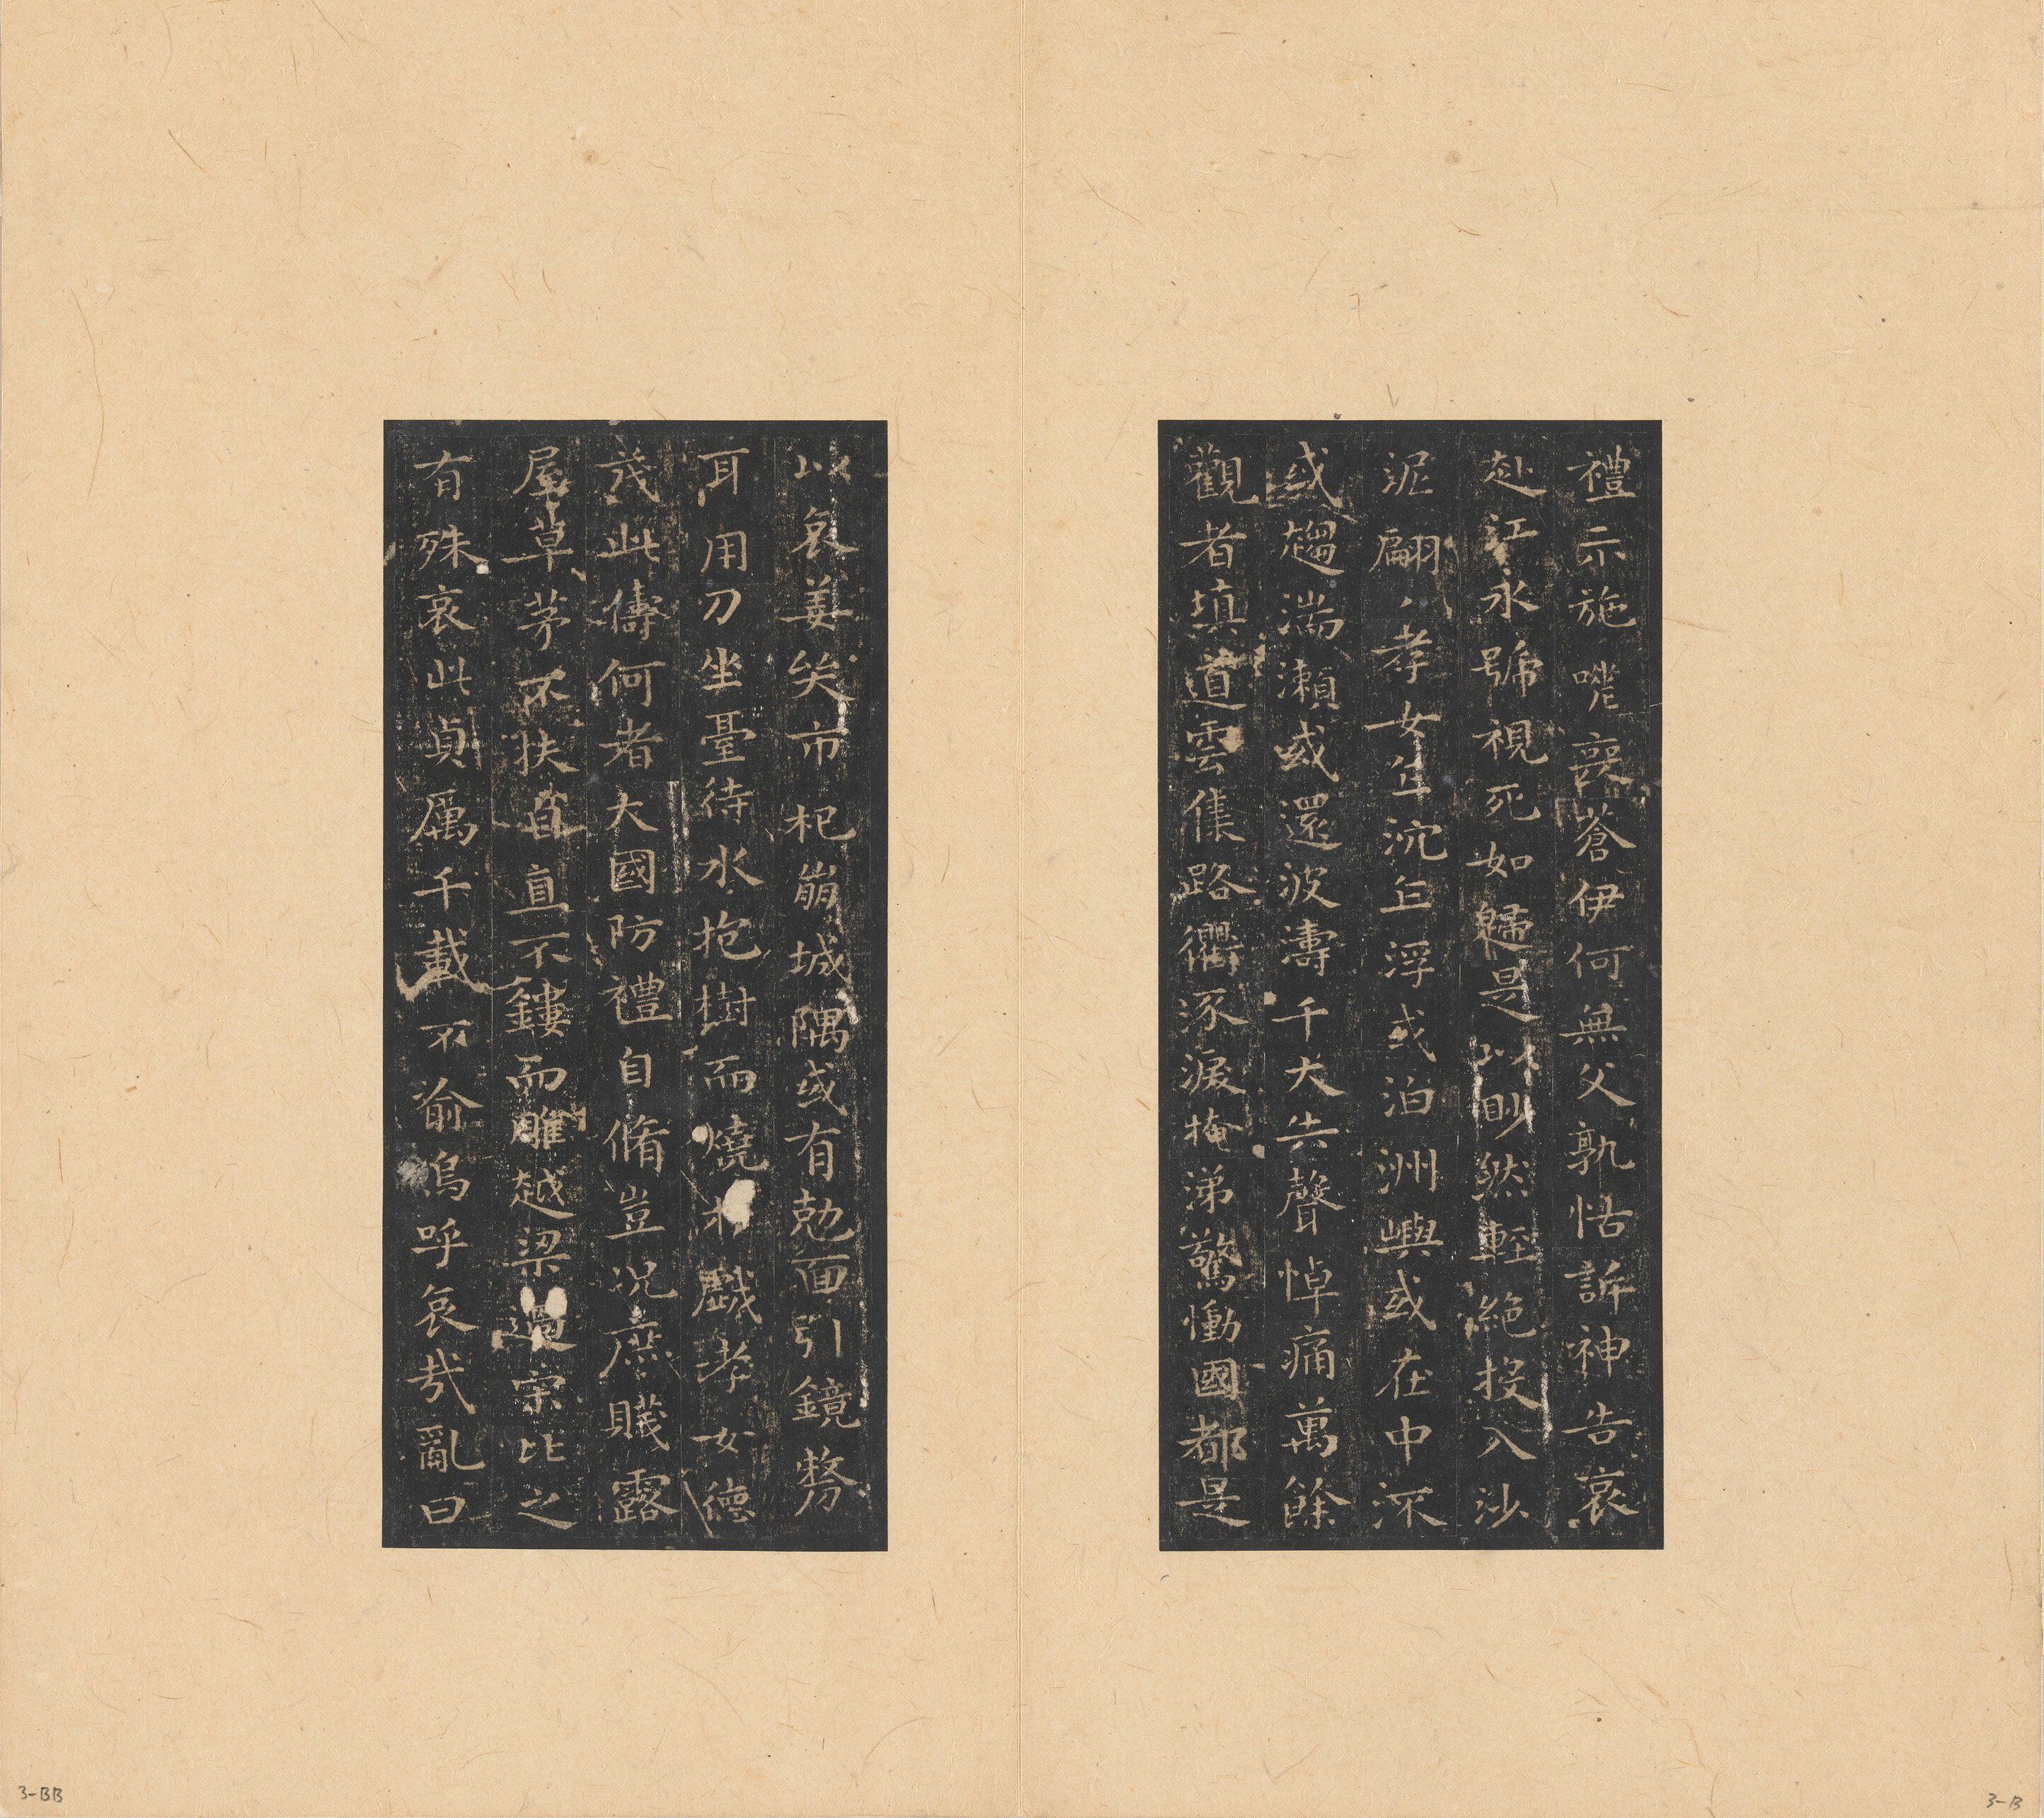 禮示施咾喪蒼伊何無父孰怙訴神告哀
赴江永號視死如歸是以眇然輕絕投入沙
泥翩〻孝女乍沉乍浮或泊洲嶼或在中流
或趨湍瀨或還波濤千夫失聲悼痛萬餘
觀者填道雲集路衢泳淚掩涕驚慟國都是
以哀姜哭市杞崩城隅或有勀面引鏡剺
耳用刀坐臺待水抱樹而燒於戲孝女德
茂此儔何者大國防禮自脩豈況庶賤露
屋草茅不扶自直不鏤而雕越梁過宋比之
有殊哀此貞厲千載不渝嗚呼哀哉亂曰
3-BB
3-B